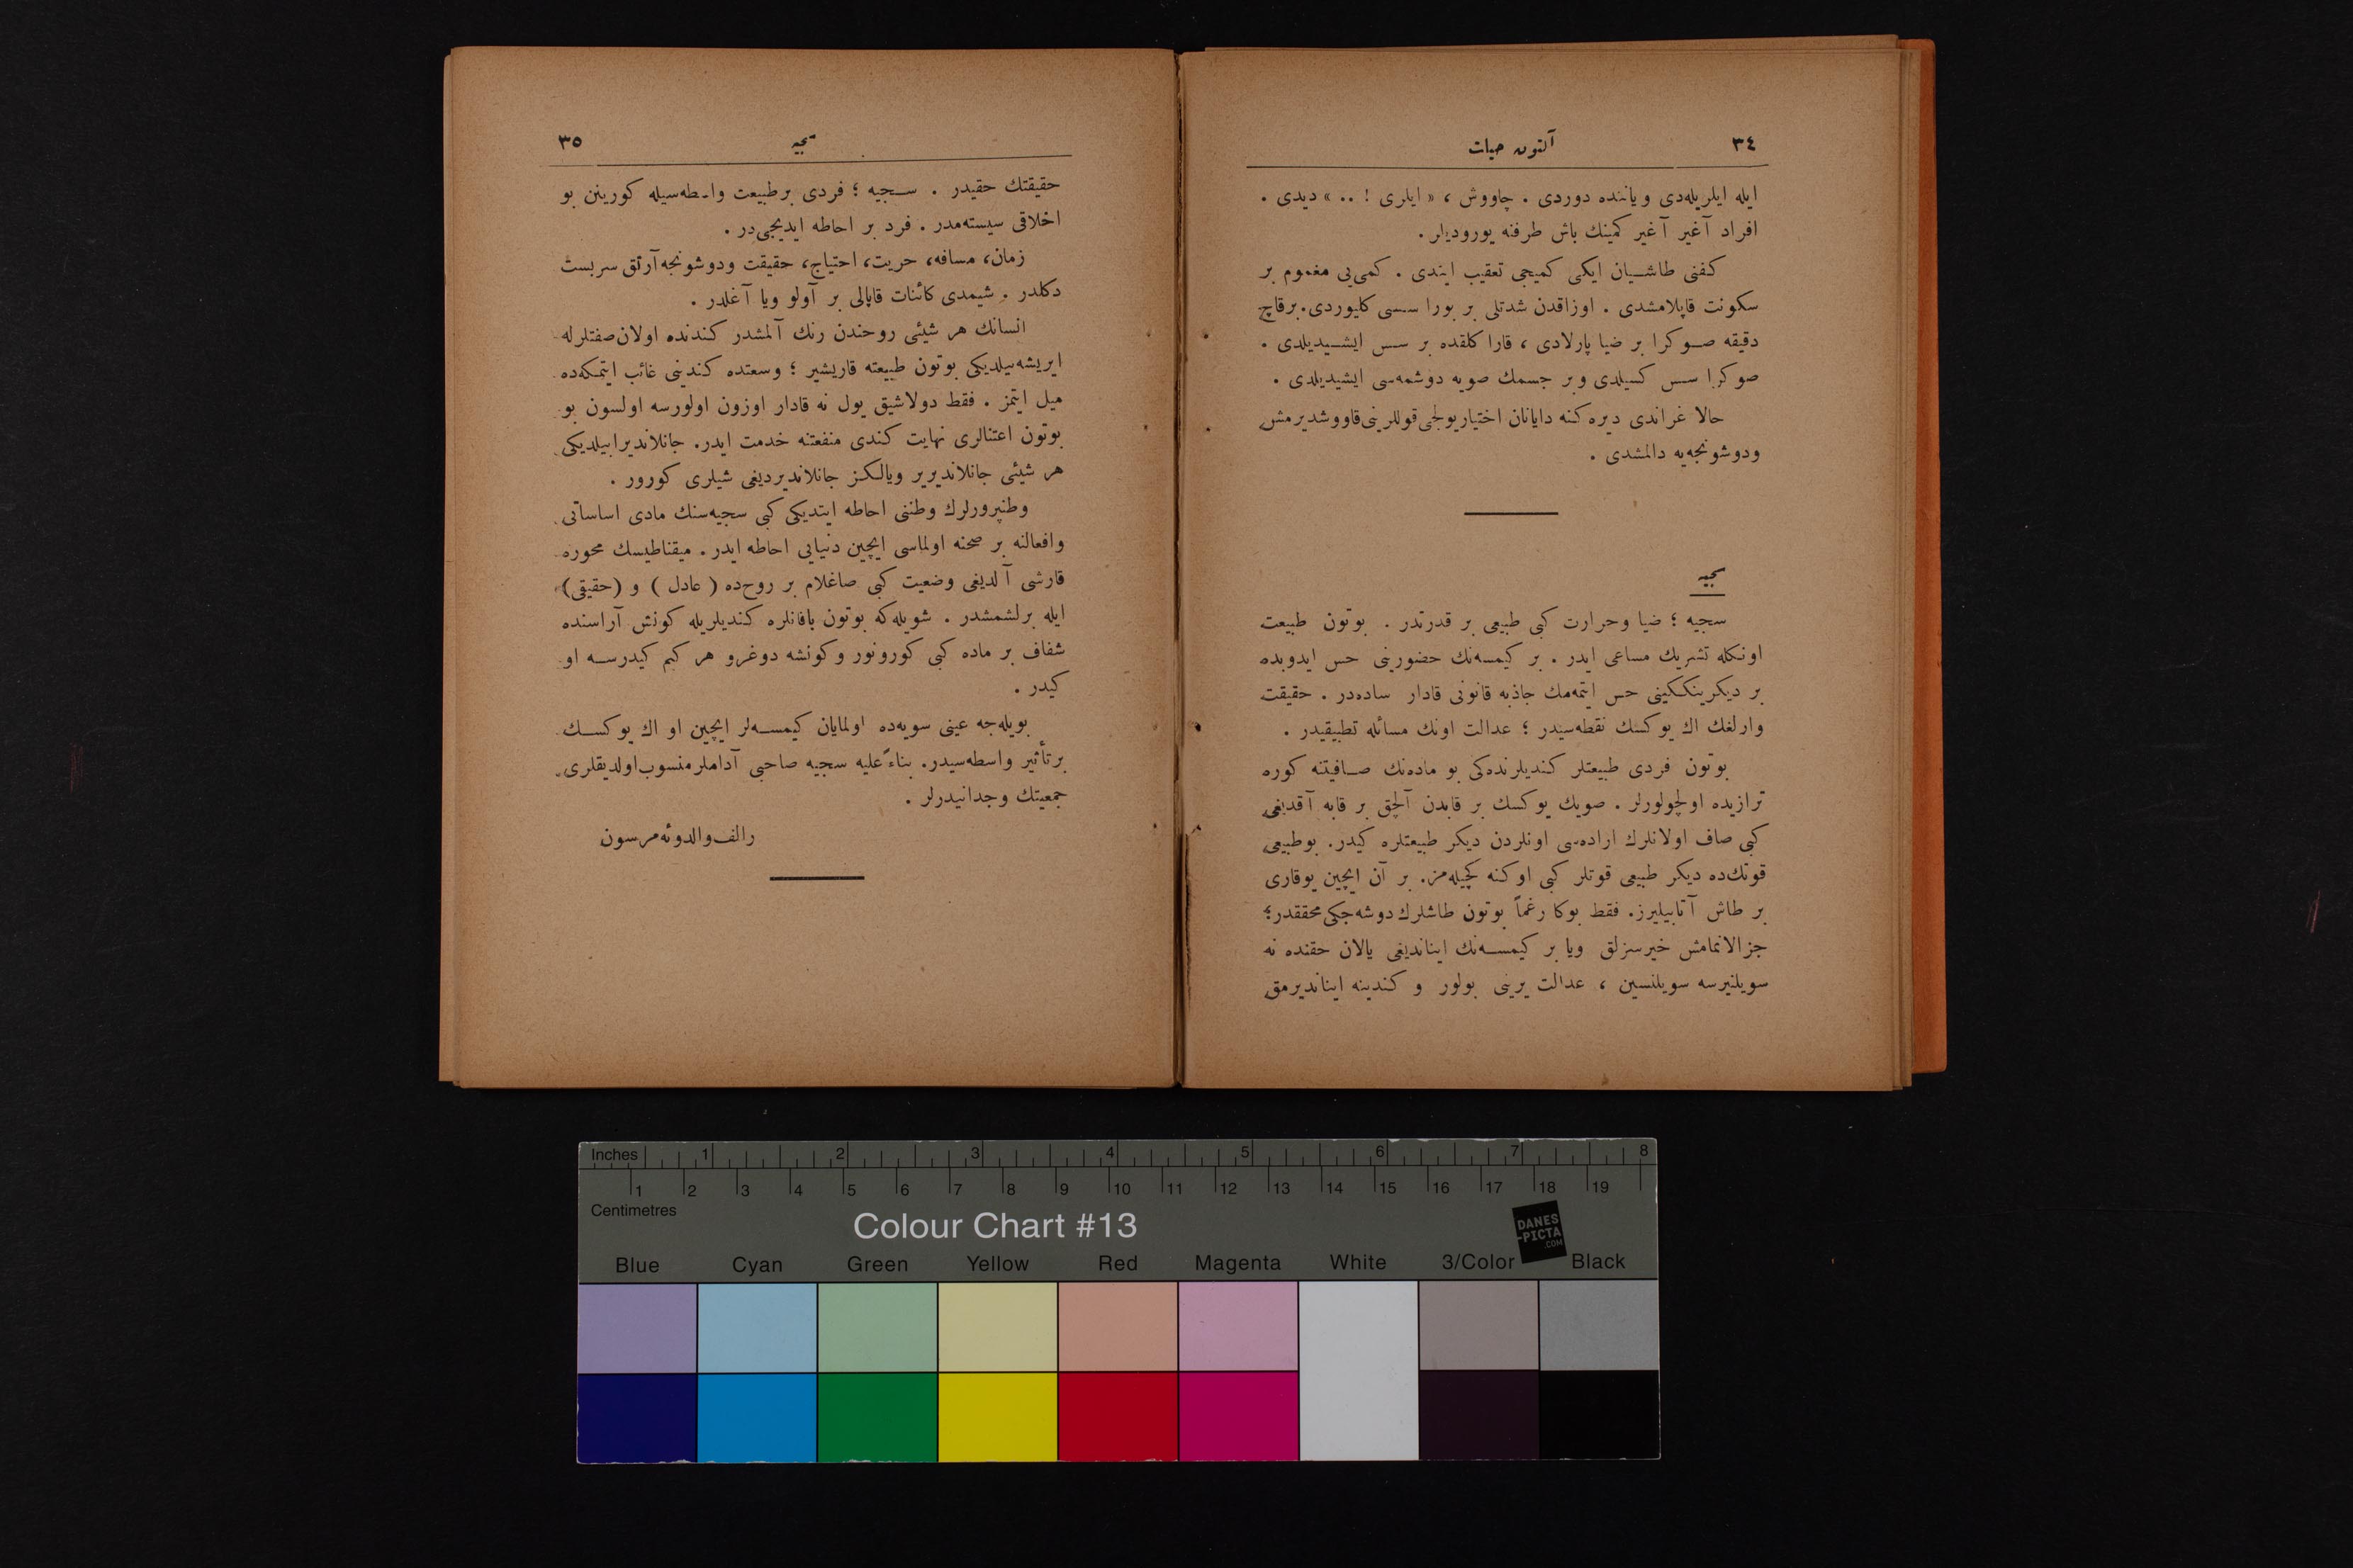 ٣٤
آلتون حيات
ايله ايلريله‌دى وياننده دوردى . چاووش ، « ايلرى ! .. » ديدى .
افراد آغير آغير كمينك باش طرفنه يوروديلر .
كفنى طاشيان ايكى كميجى تعقيب ايتدى . كمى‌يى مغموم بر
سكونت قاپلامشدى . اوزاقدن شدتلى بر بورا سسى كليوردى . برقاچ
دقيقه صوكرا بر ضيا پارلادى ، قارا كلقده بر سس ايشيديلدى .
صوكرا سس كسيلدى وبر جسمك صويه دوشمه‌سى ايشيديلدى .
حالا غراندى ديره‌كنه دايانان اختيار يولجى قوللرينى قاووشديرمش
ودوشونجه‌يه دالمشدى .
سجيه
سجيه ؛ ضيا وحرارت كبى طبيعى بر قدرتدر . بوتون طبيعت
اونكله تشريك مساعى ايدر . بر كيمسه‌نك حضورينى حس ايدوبده
بر ديكرينككينى حس ايتمه‌مك جاذبه قانونى قادار ساده‌در . حقيقت
وارلغك اك يوكسك نقطه‌سيدر ؛ عدالت اونك مسائله تطبيقيدر .
بوتون فردى طبيعتلر كنديلرنده‌كى بو ماده‌نك صافيتنه كوره
ترازيده اولچولورلر . صويك يوكسك بر قابدن آلچق بر قابه آقديغى
كبى صاف اولانلرك اراده‌سى اونلردن ديكر طبيعتلره كيدر. بوطبيعى
قوتك‌ده ديكر طبيعى قوتلر كبى اوكنه كچيله‌مز. بر آن ايچين يوقارى
بر طاش آتابيليرز. فقط بوكا رغماً بوتون طاشلرك دوشه‌جكى محققدر؛
جزالانمامش خيرسزلق ويا بر كيمسه‌نك ايناندیغى يالان حقنده نه
سويلنيرسه سويلنسين ، عدالت يرينى بولور و كندينه اينانديرمق
٣٥
سجيه
حقيقتك حقيدر . سجيه ؛ فردى بر طبيعت واسطه‌سيله كورينن بو
اخلاقى سيسته‌مدر . فرد بر احاطه ايديجى‌در .
زمان، مسافه، حريت، احتياج، حقيقت ودوشونجه آرتق سربست
دكلدر . شيمدى كائنات قاپالى بر آولو ويا آغلدر .
انسانك هر شيئى روحندن رنك آلمشدر كندنده اولان صفتلرله
ايريشه‌بيلديكى بوتون طبيعته قاريشير ؛ وسعتده كندينى غائب ايتمكه‌ده
ميل ايتمز . فقط دولاشيق يول نه قادار اوزون اولورسه اولسون بو
بوتون اعتنالرى نهايت كندى منفعتنه خدمت ايدر. جانلانديرابيلديكى
هر شيئى جانلانديرير ويالكز جانلانديرديغى شيلرى كورور .
وطنپرورلرك وطننى احاطه ايتديكى كبى سجيه‌سنك مادى اساساتى
وافعالنه بر صحنه اولماسى ايچين دنيايى احاطه ايدر . ميقناطيسك محوره
قارشى آلديغى وضعيت كبى صاغلام بر روح‌ده ( عادل ) و (حقيقى)
ايله برلشمشدر . شويله‌كه بوتون باقانلره كنديلريله كونش آراسنده
شفاف بر ماده كبى كورونور و كونشه دوغرو هر كيم كيدرسه او
كيدر .
بويله‌جه عينى سويه‌ده اولمايان كيمسه‌لر ايچين او اك يوكسك
بر تأثير واسطه‌سيدر. بناءً عليه سجيه صاحبى آداملر منسوب اولديقلرى
جمعيتك وجدانيدرلر .
رالف والدو ئه‌مرسون
Inches 1 2 3 4 5 6 7 8
1 2 3 4 5 6 7 8 9 10 11 12 13 14 15 16 17 18 19
Centimetres
Colour Chart #13
DANES
-PICTA
.COM
Blue Cyan Green Yellow Red Magenta White 3/Color Black